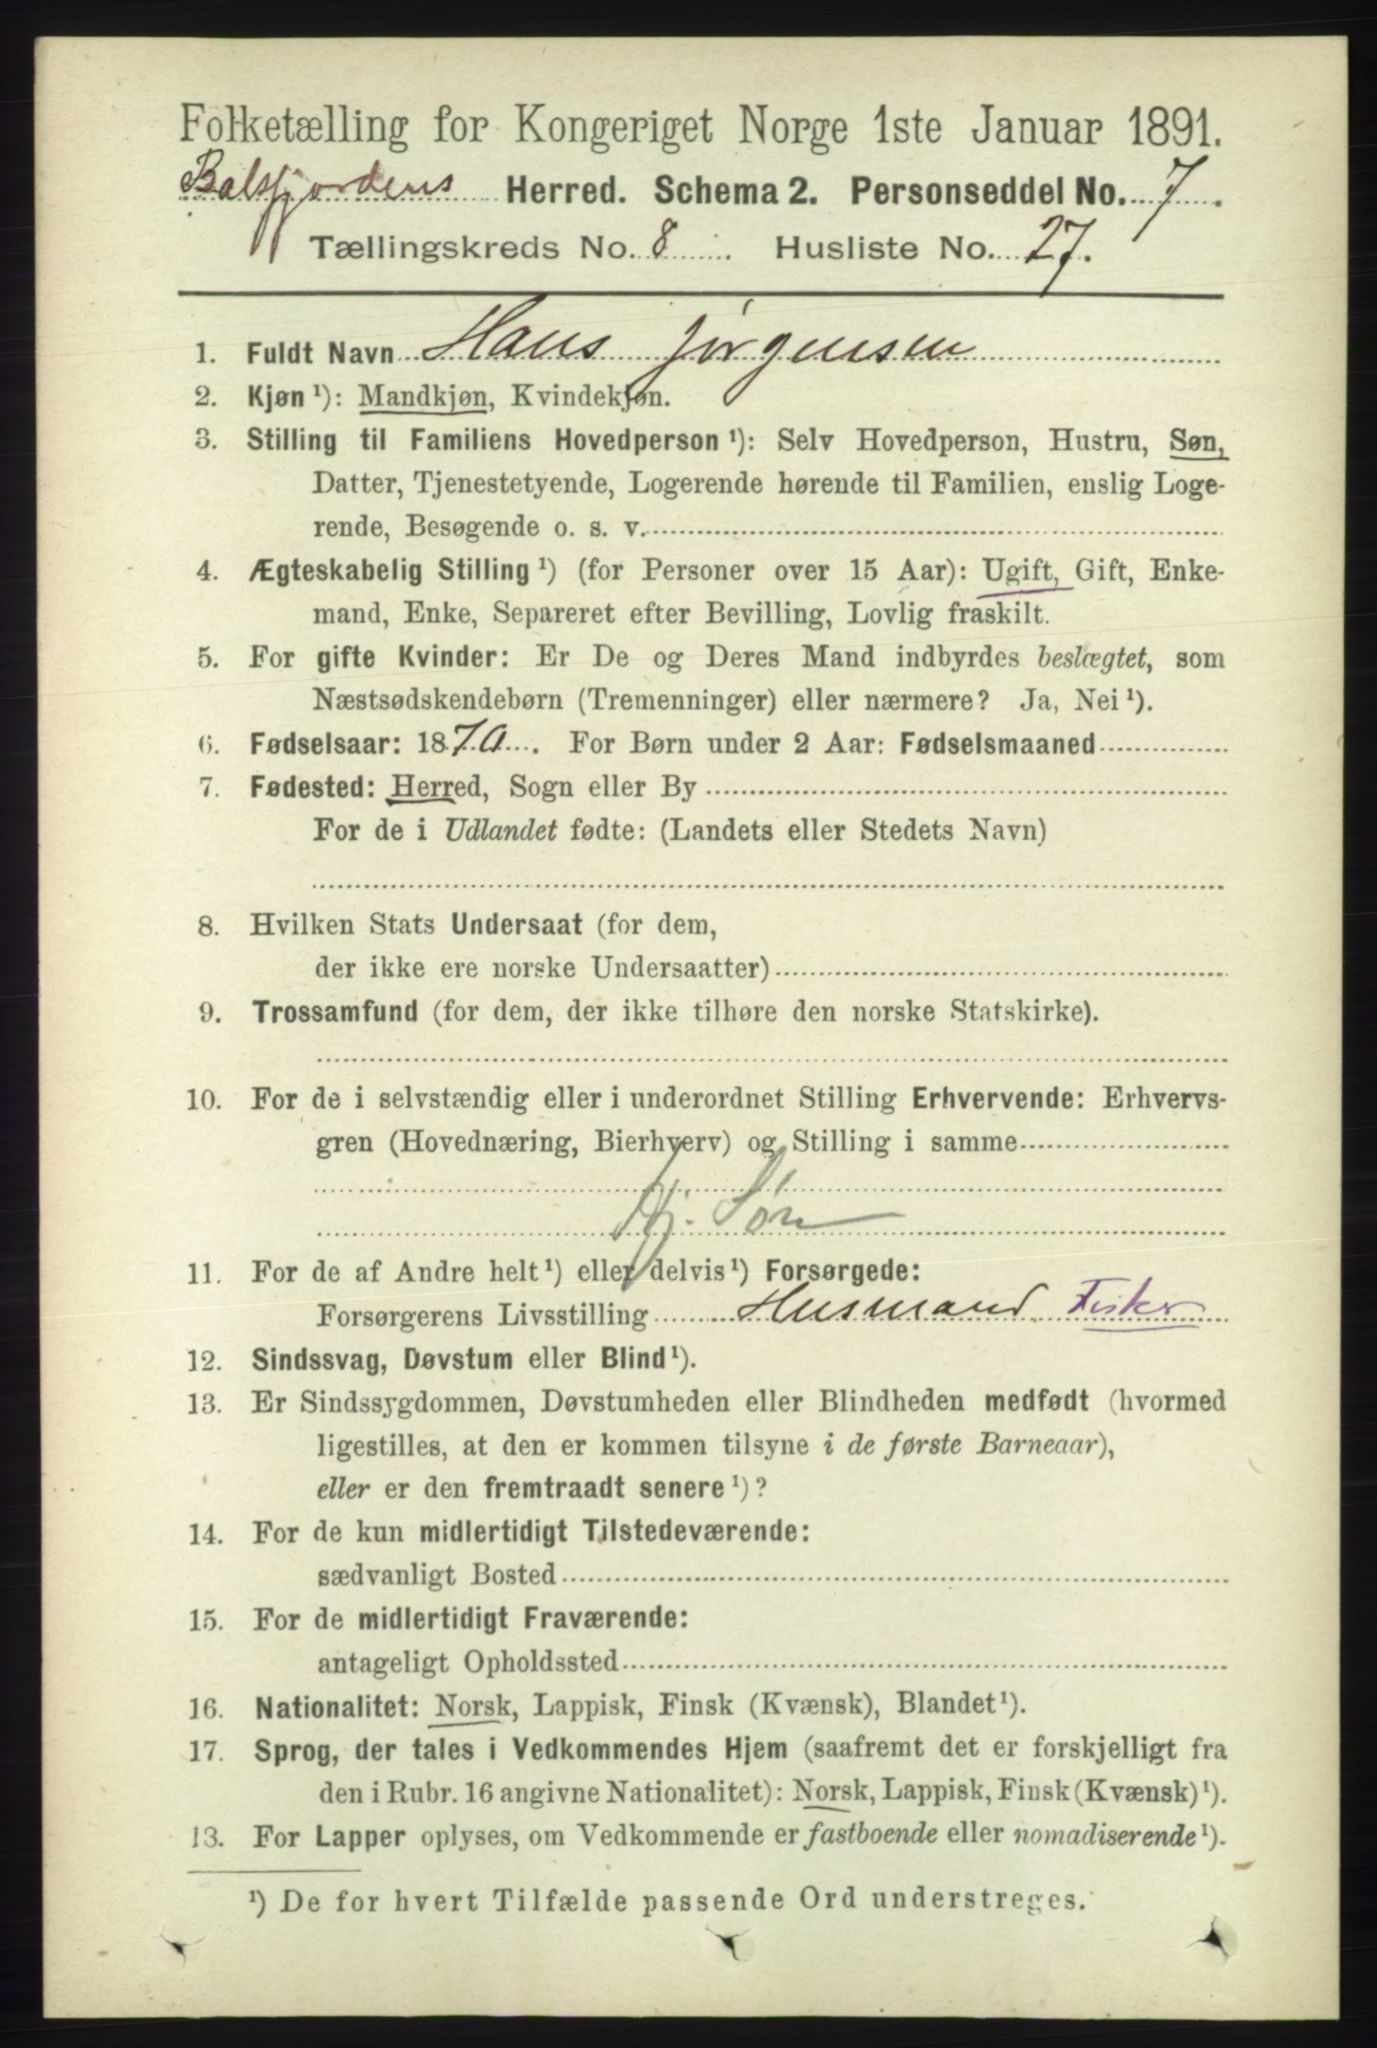 Folketælling for Kongeriget Norge 1ste Januar 1891.
Balsfjordens Herred. Schema 2. Personseddel No. 7.
Tællingskreds No. 8. Husliste No. 27.
1. Fuldt Navn Hans Jørgensen
2. Kjøn ¹): Mandkjøn, Kvindekjøn.
3. Stilling til Familiens Hovedperson ¹): Selv Hovedperson, Hustru, Søn,
Datter, Tjenestetyende, Logerende hørende til Familien, enslig Loge-
rende, Besøgende o. s. v.
4. Ægteskabelig Stilling ¹) (for Personer over 15 Aar): Ugift, Gift, Enke-
mand, Enke, Separeret efter Bevilling, Lovlig fraskilt.
5. For gifte Kvinder: Er De og Deres Mand indbyrdes beslægtet, som
Næstsødskendebørn (Tremenninger) eller nærmere? Ja, Nei ¹).
6. Fødselsaar: 1870. For Børn under 2 Aar: Fødselsmaaned
7. Fødested: Herred, Sogn eller By
For de i Udlandet fødte: (Landets eller Stedets Navn)
8. Hvilken Stats Undersaat (for dem,
der ikke ere norske Undersaatter)
9. Trossamfund (for dem, der ikke tilhøre den norske Statskirke).
10. For de i selvstændig eller i underordnet Stilling Erhvervende: Erhvervs-
gren (Hovednæring, Bierhverv) og Stilling i samme
Hj. Søn
11. For de af Andre helt ¹) eller delvis ¹) Forsørgede:
Forsørgerens Livsstilling Husmand Fisker
12. Sindssvag, Døvstum eller Blind ¹).
13. Er Sindssygdommen, Døvstumheden eller Blindheden medfødt (hvormed
ligestilles, at den er kommen tilsyne i de første Barneaar),
eller er den fremtraadt senere ¹)?
14. For de kun midlertidigt Tilstedeværende:
sædvanligt Bosted
15. For de midlertidigt Fraværende:
antageligt Opholdssted
16. Nationalitet: Norsk, Lappisk, Finsk (Kvænsk), Blandet ¹).
17. Sprog, der tales i Vedkommendes Hjem (saafremt det er forskjelligt fra
den i Rubr. 16 angivne Nationalitet): Norsk, Lappisk, Finsk (Kvænsk) ¹).
13. For Lapper oplyses, om Vedkommende er fastboende eller nomadiserende ¹).
¹) De for hvert Tilfælde passende Ord understreges.